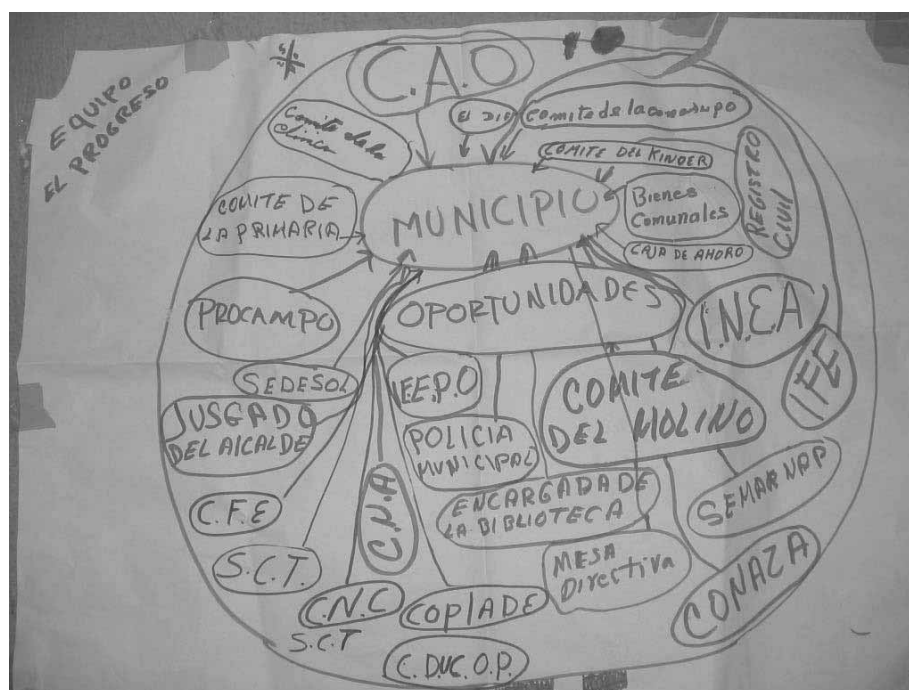 EQUIPO
EL PROGRESO
C.A.O
EL DIF
Comite de la conasupo
Comite de la
Clinica
COMITE DEL KINDER
REGISTRO
CIVIL
COMITE DE
LA PRIMARIA
MUNICIPIO
Bienes
Comunales
CAJA DE AHORO
PROCAMPO
OPORTUNIDADES
I.N.E.A
IFE
SEDESOL
I.E.E.P.O
COMITE
DEL MOLINO
JUSGADO
DEL AlCALDE
POLICIA
MUNICIPAL
SEMARNAP
C.F.E
C.N.A
ENCARGADA DE
LA BIBLIOTECA
S.C.T.
MESA
DIrectiva
CONAZA
C.N.C
S.C.T
COPLADE
C.DUC.O.P.